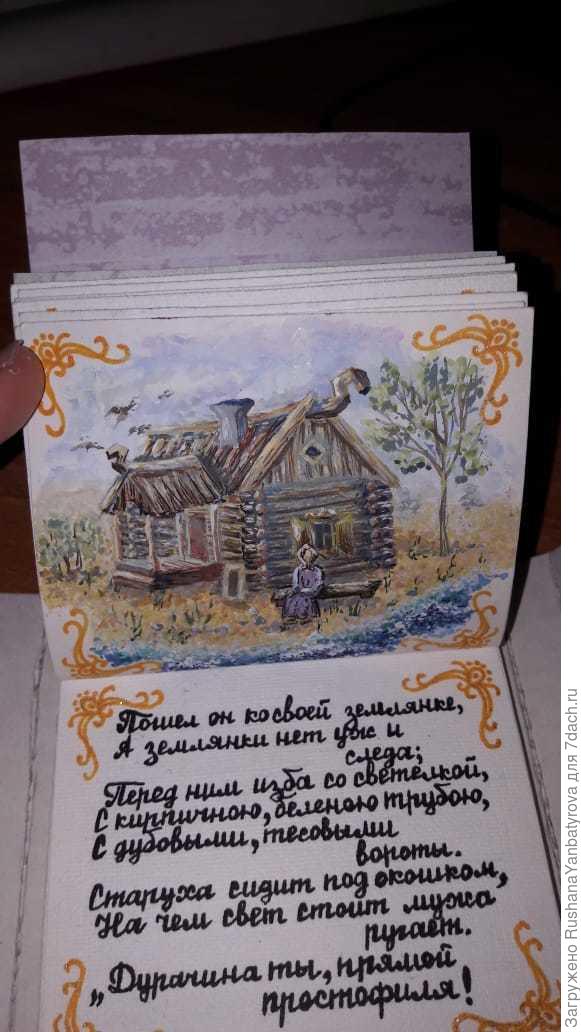 Пошел он ко своей землянке,
А землянки нет уж и
следа;
Перед ним изба со светелкой,
С кирпичною, беленою трубою,
С дубовыми, тесовыми
вороты.
Старуха сидит под окошком,
На чем свет стоит мужа
ругает.
„Дурачина ты, прямой
простофиля!
Загружено RushanaYanbatyrova для 7dach.ru